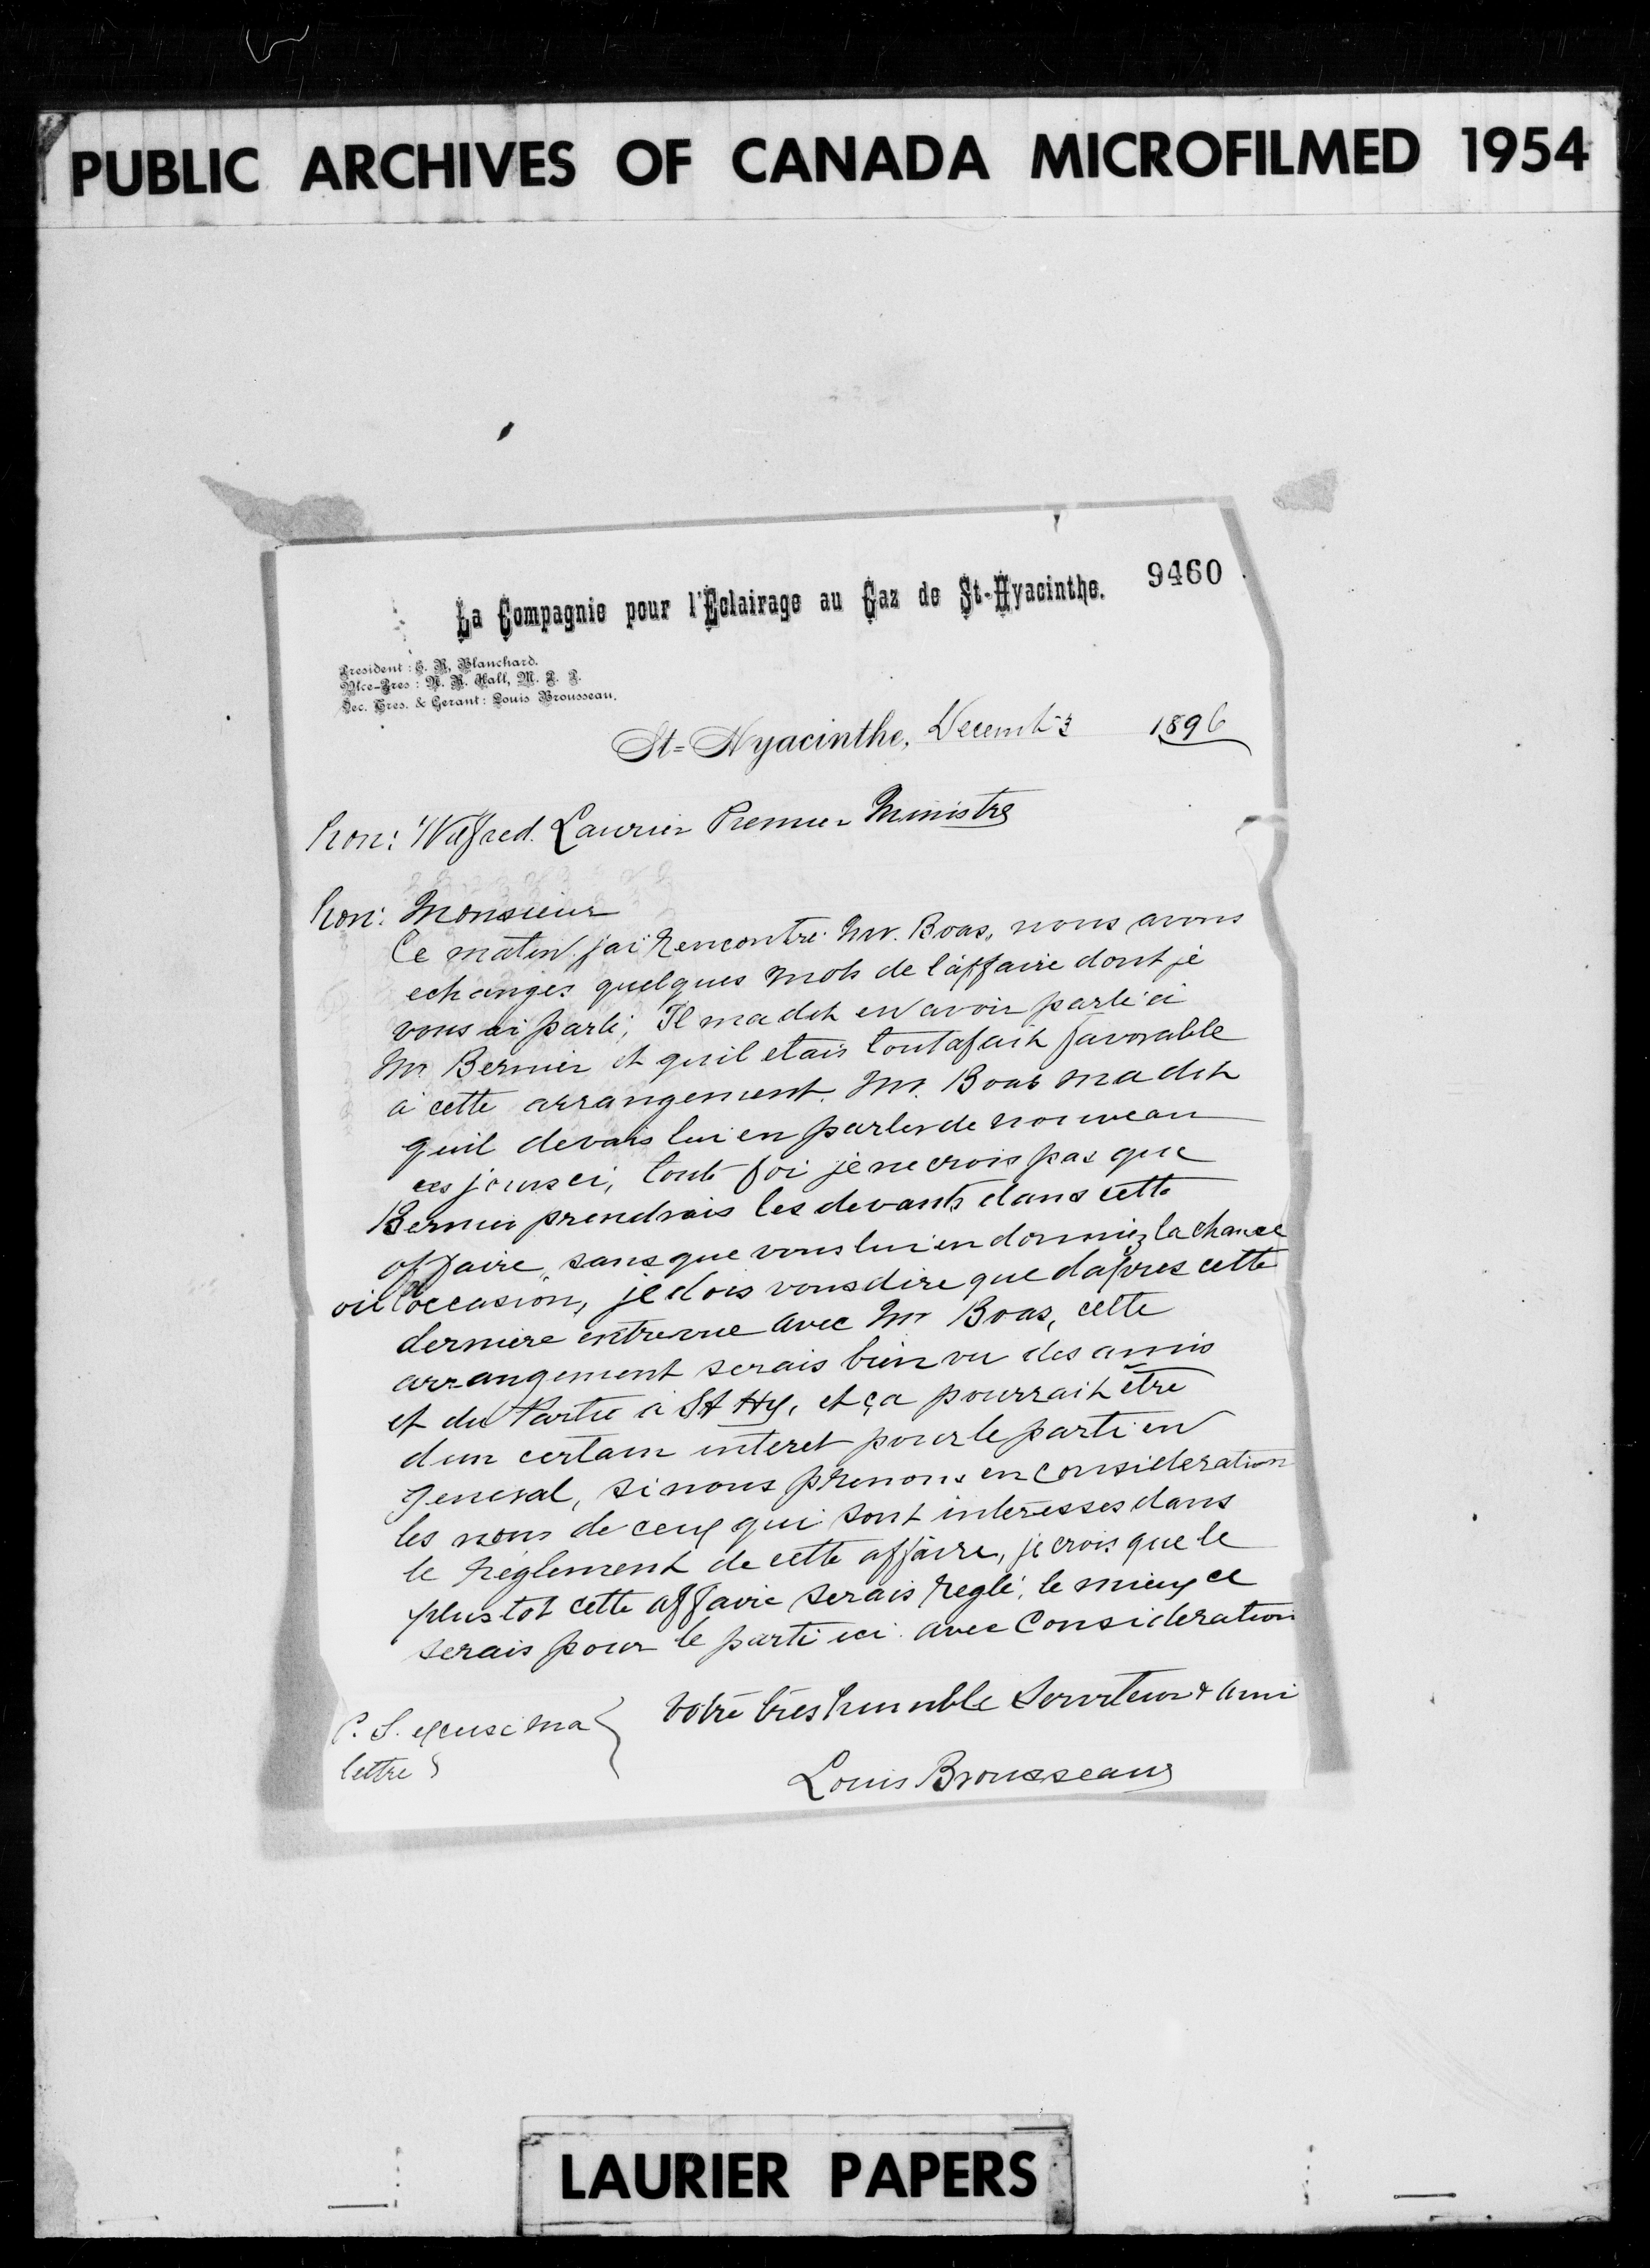 PUBLIC ARCHIVES OF CANADA MICROFILMED 1954
9460
La Compagnie pour l'Eclairage au Gaz de St-Hyacinthe.
President : E. R, Blanchard.
Vice-Pres : N. R. Hall, M. P. P.
Sec. Tres. & Gerant : Louis Brousseau.
St-Hyacinthe, Decemb 3 1896
hon: Wilfred. Laurier Premier Ministre
hon: Monsieur
Ce matin j'ai Rencontré Mr. Boas, nous avons
echanges quelques mots de l'affaire dont je
vous ai parlé; Il ma dit en avoir parlé a
Mr. Bernier et quil etais toutafait favorable
a cette arrangement. Mr. Boas ma dit
quil devais lui en parler de nouveau
ces jours ci, toute foi je ne crois pas que
Bernier prendrais les devants dans cette
affaire, sans que vous lui en donniez la chance
ou l'occasion, je dois vous dire que dapres cette
derniere entrevue avec Mr Boas, cette
arrangement serais bien vu des amis
et du Partie a St Hy, et ça pourrait être
dun certain interet pour le parti en
general, si nous prenons en consideration
les noms de ceux qui sont interesses dans
le Réglement de cette affaire, je crois que le
plus tot cette affaire serais Reglé, le mieux ce
serais pour le parti ici. avec Consideration
Votre tres humble Serviteur & ami
Louis Brousseau
P. S. excuse ma
lettre
LAURIER PAPERS